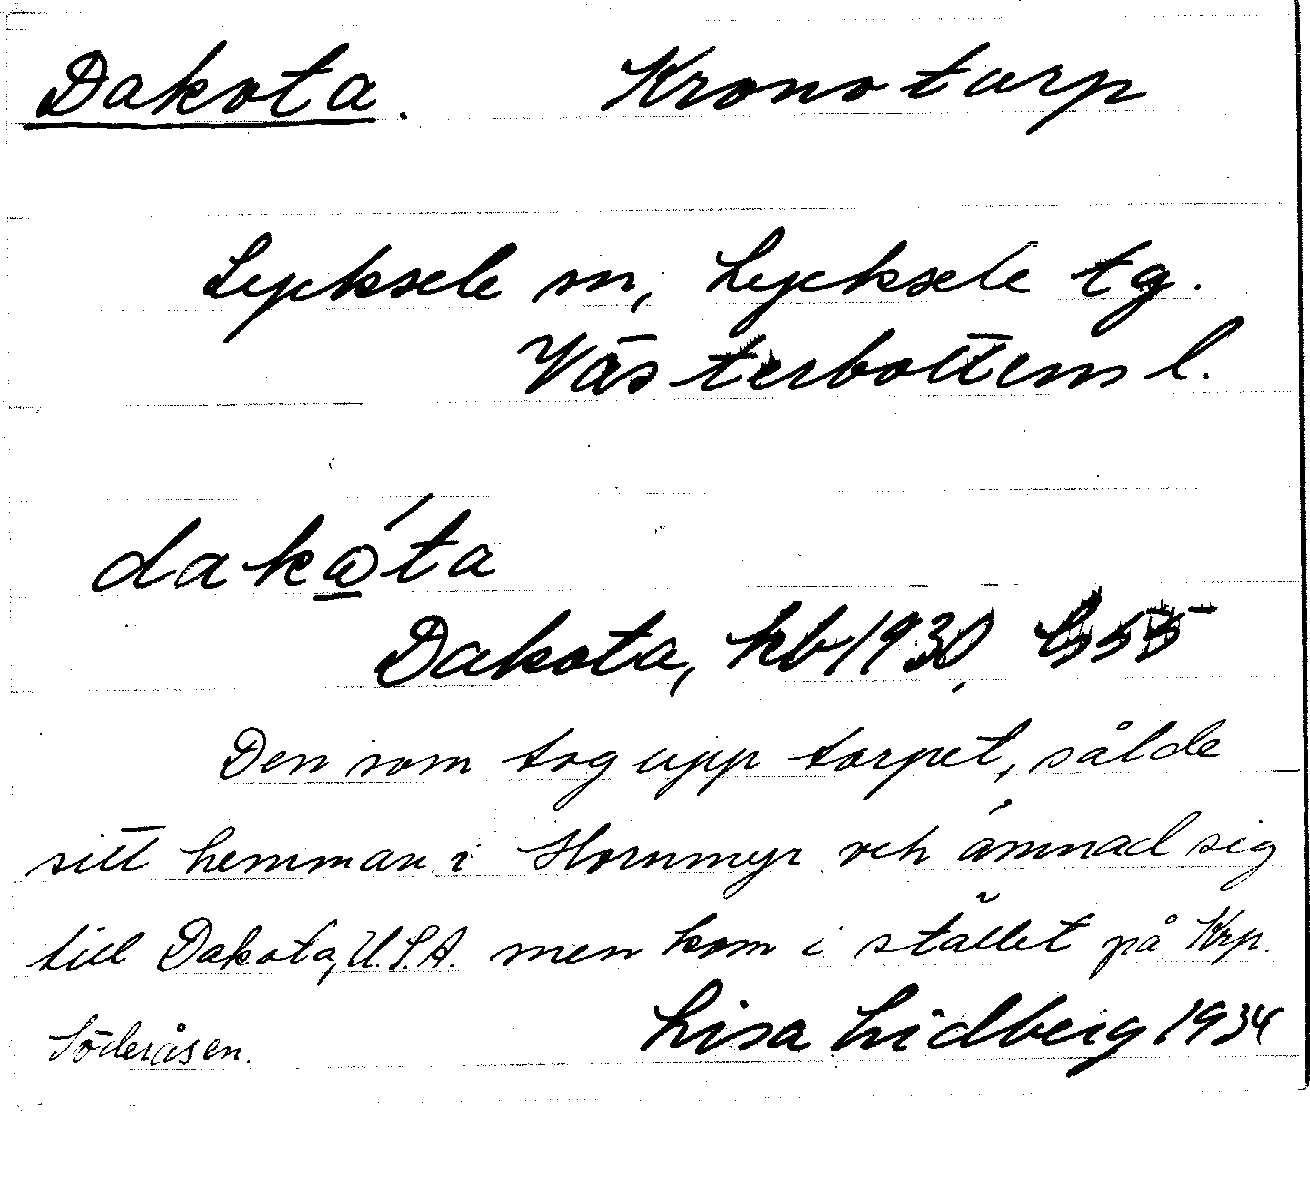 Dakota. Kronotorp
Lycksele sn, Lycksele tg.
Västerbottens l.
dakǫ́ta
Dakota, kb 1930,
Den som tog upp torpet, sålde
sitt hemman i Hornmyr och ämnad sig
till Dakota, U.S.A. men kom i stället på Krp.
Söderåsen. Lisa Lidberg 1934